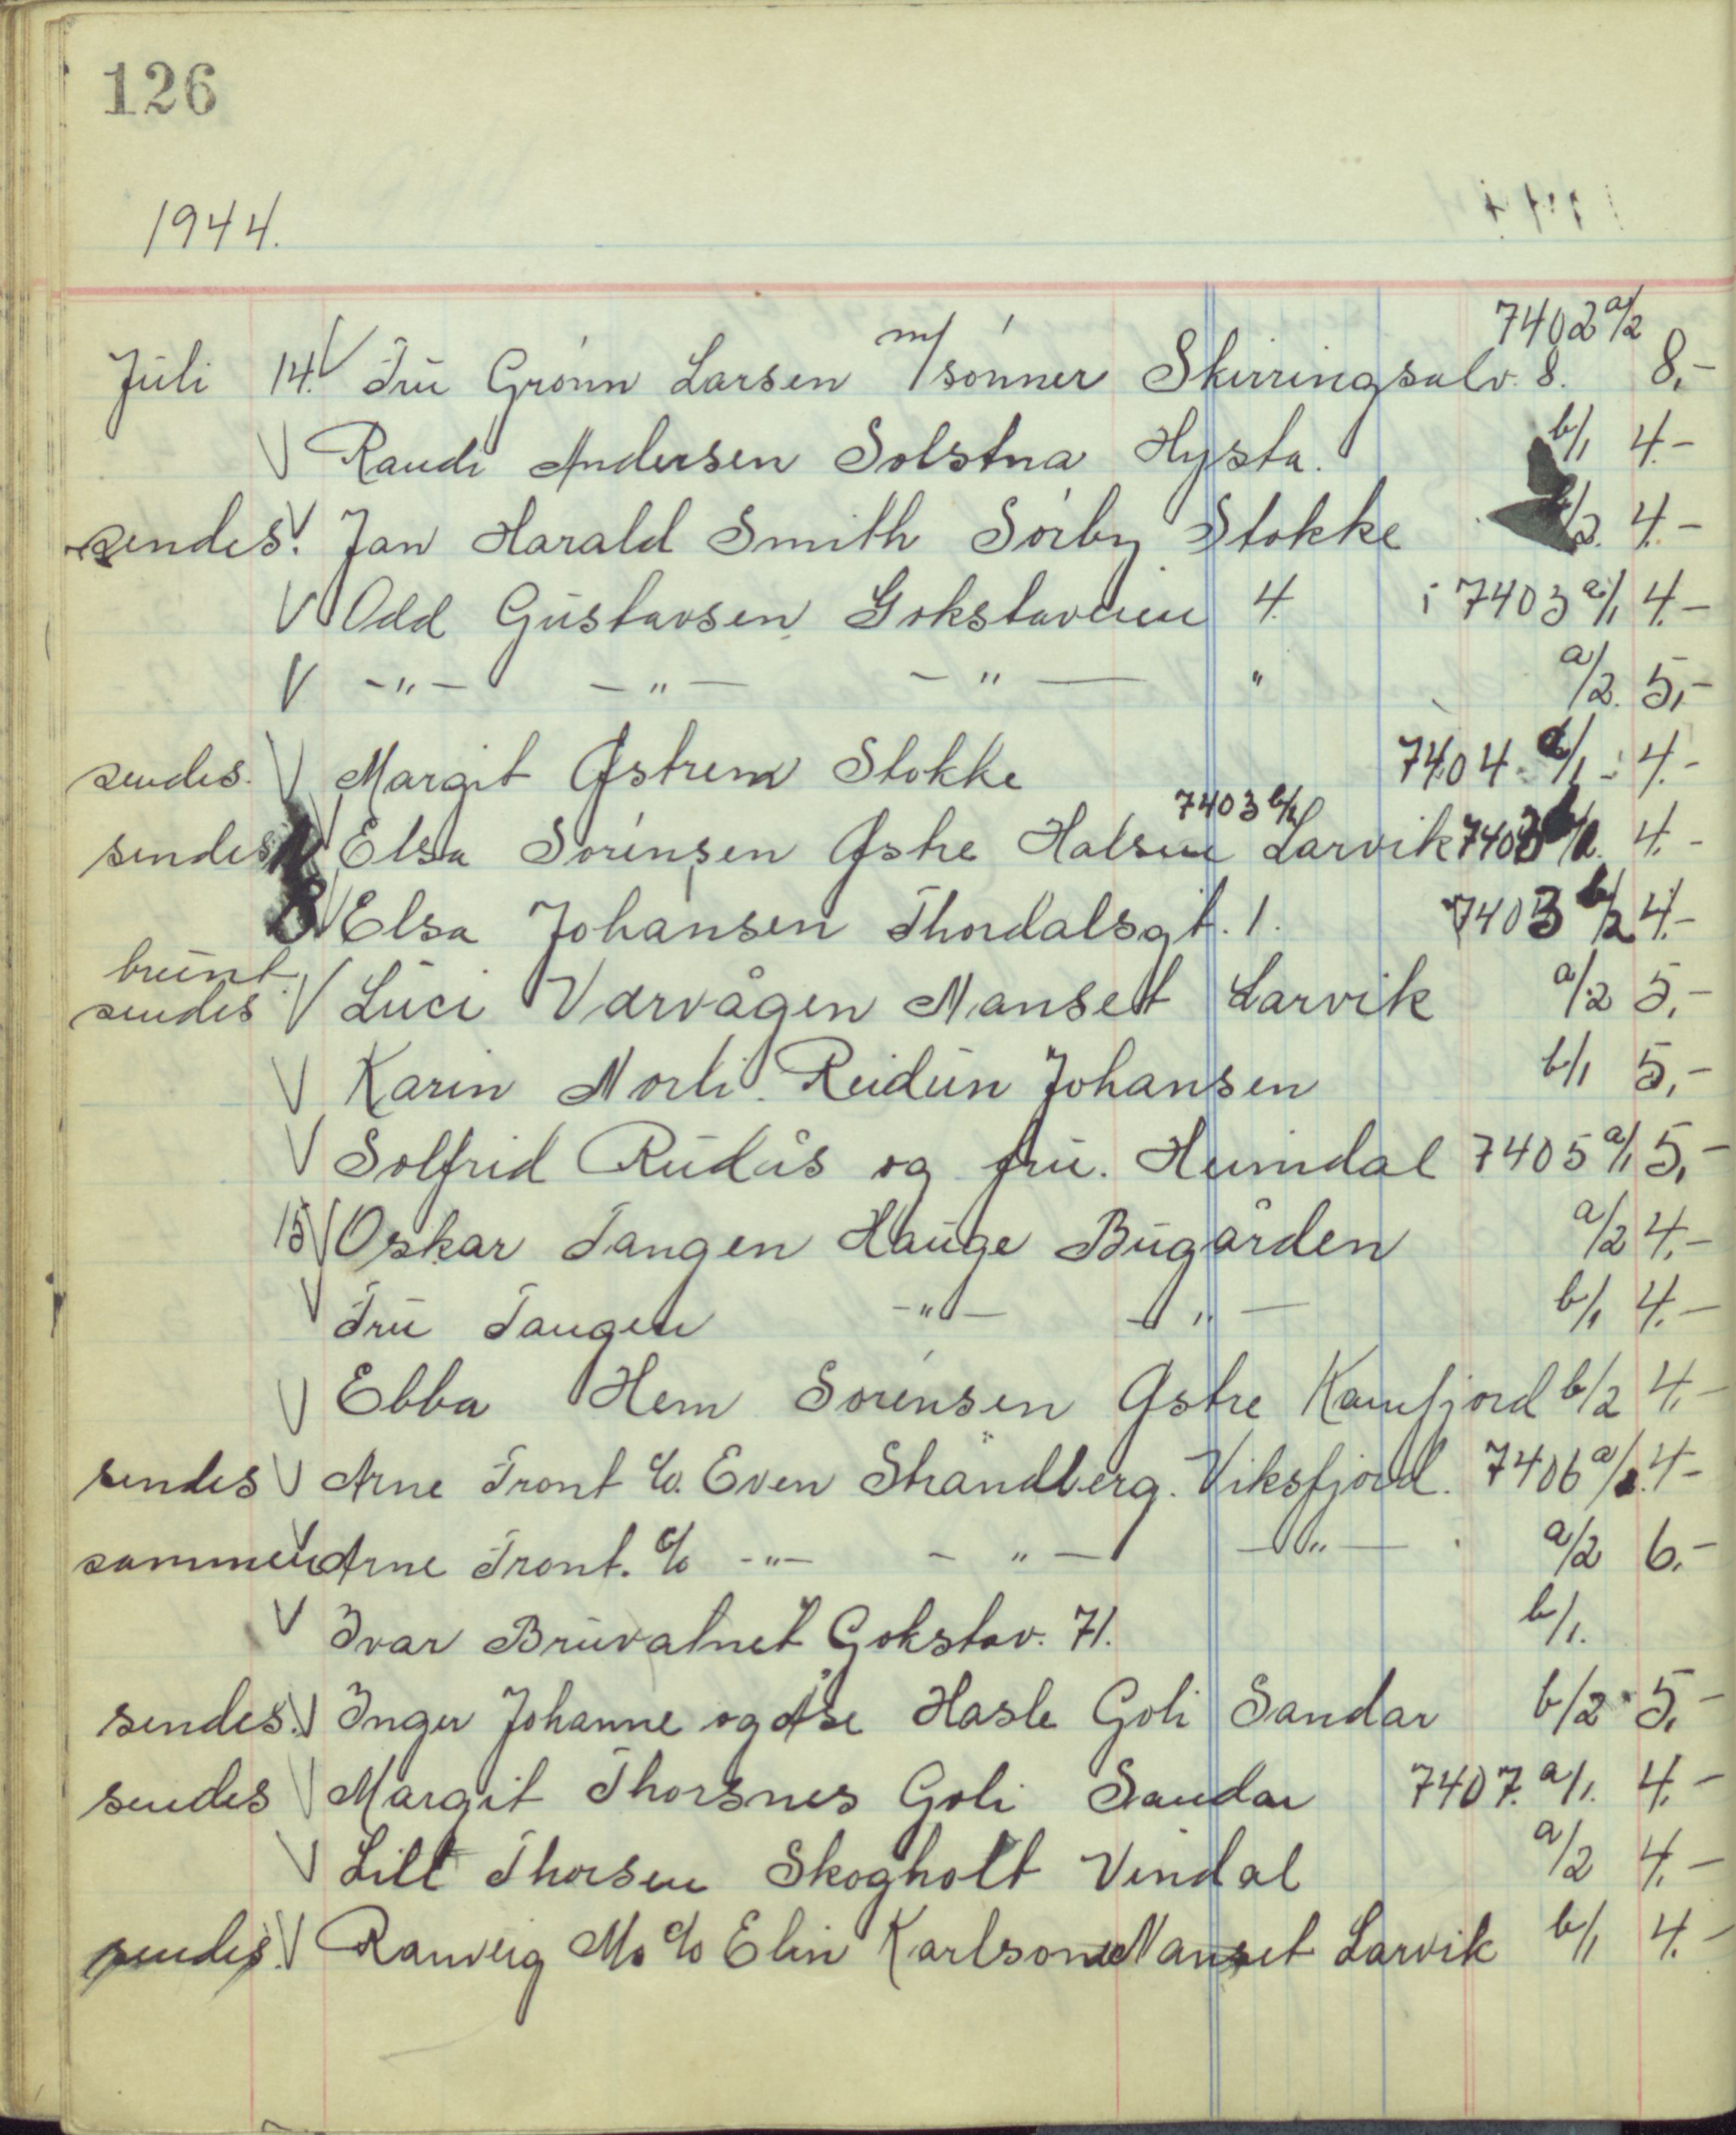 126
1944.
Juli 14. V Fru Grønn Larsen m/sønner Skirringsalv. 8. 7402 a/2 8,-
V Randi Andersen Solstua Hysta. b/1 4.-
sendes. V Jan Harald Smith Sørby Stokke /2. 4.-
V Odd Gustavsen Gokstaveien 4. i 7403 a/1 4.-
V -"- -"- -"- " a/2. 5,-
sendes. V Margit Østrem Stokke 7404 a/1 - 4.-
sendes V Elsa Sørensen Østre Halsen 7403 b/1 Larvik 7403 4.-
V Elsa Johansen Thordalsgt. 1. 7403 b/2 4.-
brunt.
sendes V Luci Varvågen Nanset Larvik a/2 5,-
V Karin Norli. Reidun Johansen b/1 5,-
V Solfrid Rudås og fru. Heimdal 7405 a/1 5,-
15 V Oskar Tangen Hauge Bugården a/2 4,-
V Fru Tangen -"- -"- b/1 4.-
V Ebba Hem Sørensen Østre Kamfjord b/2 4,-
sendes V Arne Tront c/o. Even Strandberg. Viksfjord. 7406 a/1. 4-
sammen V Arne Tront. c/o -"- -"- -"- a/2 6.-
V Ivar Bruvatnet Gokstav. 71. b/1.
sendes. V Inger Johanne og Åse Hasle Goli Sandar b/2 5,-
sendes V Margit Thorsnes Goli Sandar 7407. a/1. 4,-
V Lill Thorsen Skogholt Vindal a/2 4,-
sendes. V Ranveig Mo c/o Elin Karlson Nanset Larvik b/1 4.-